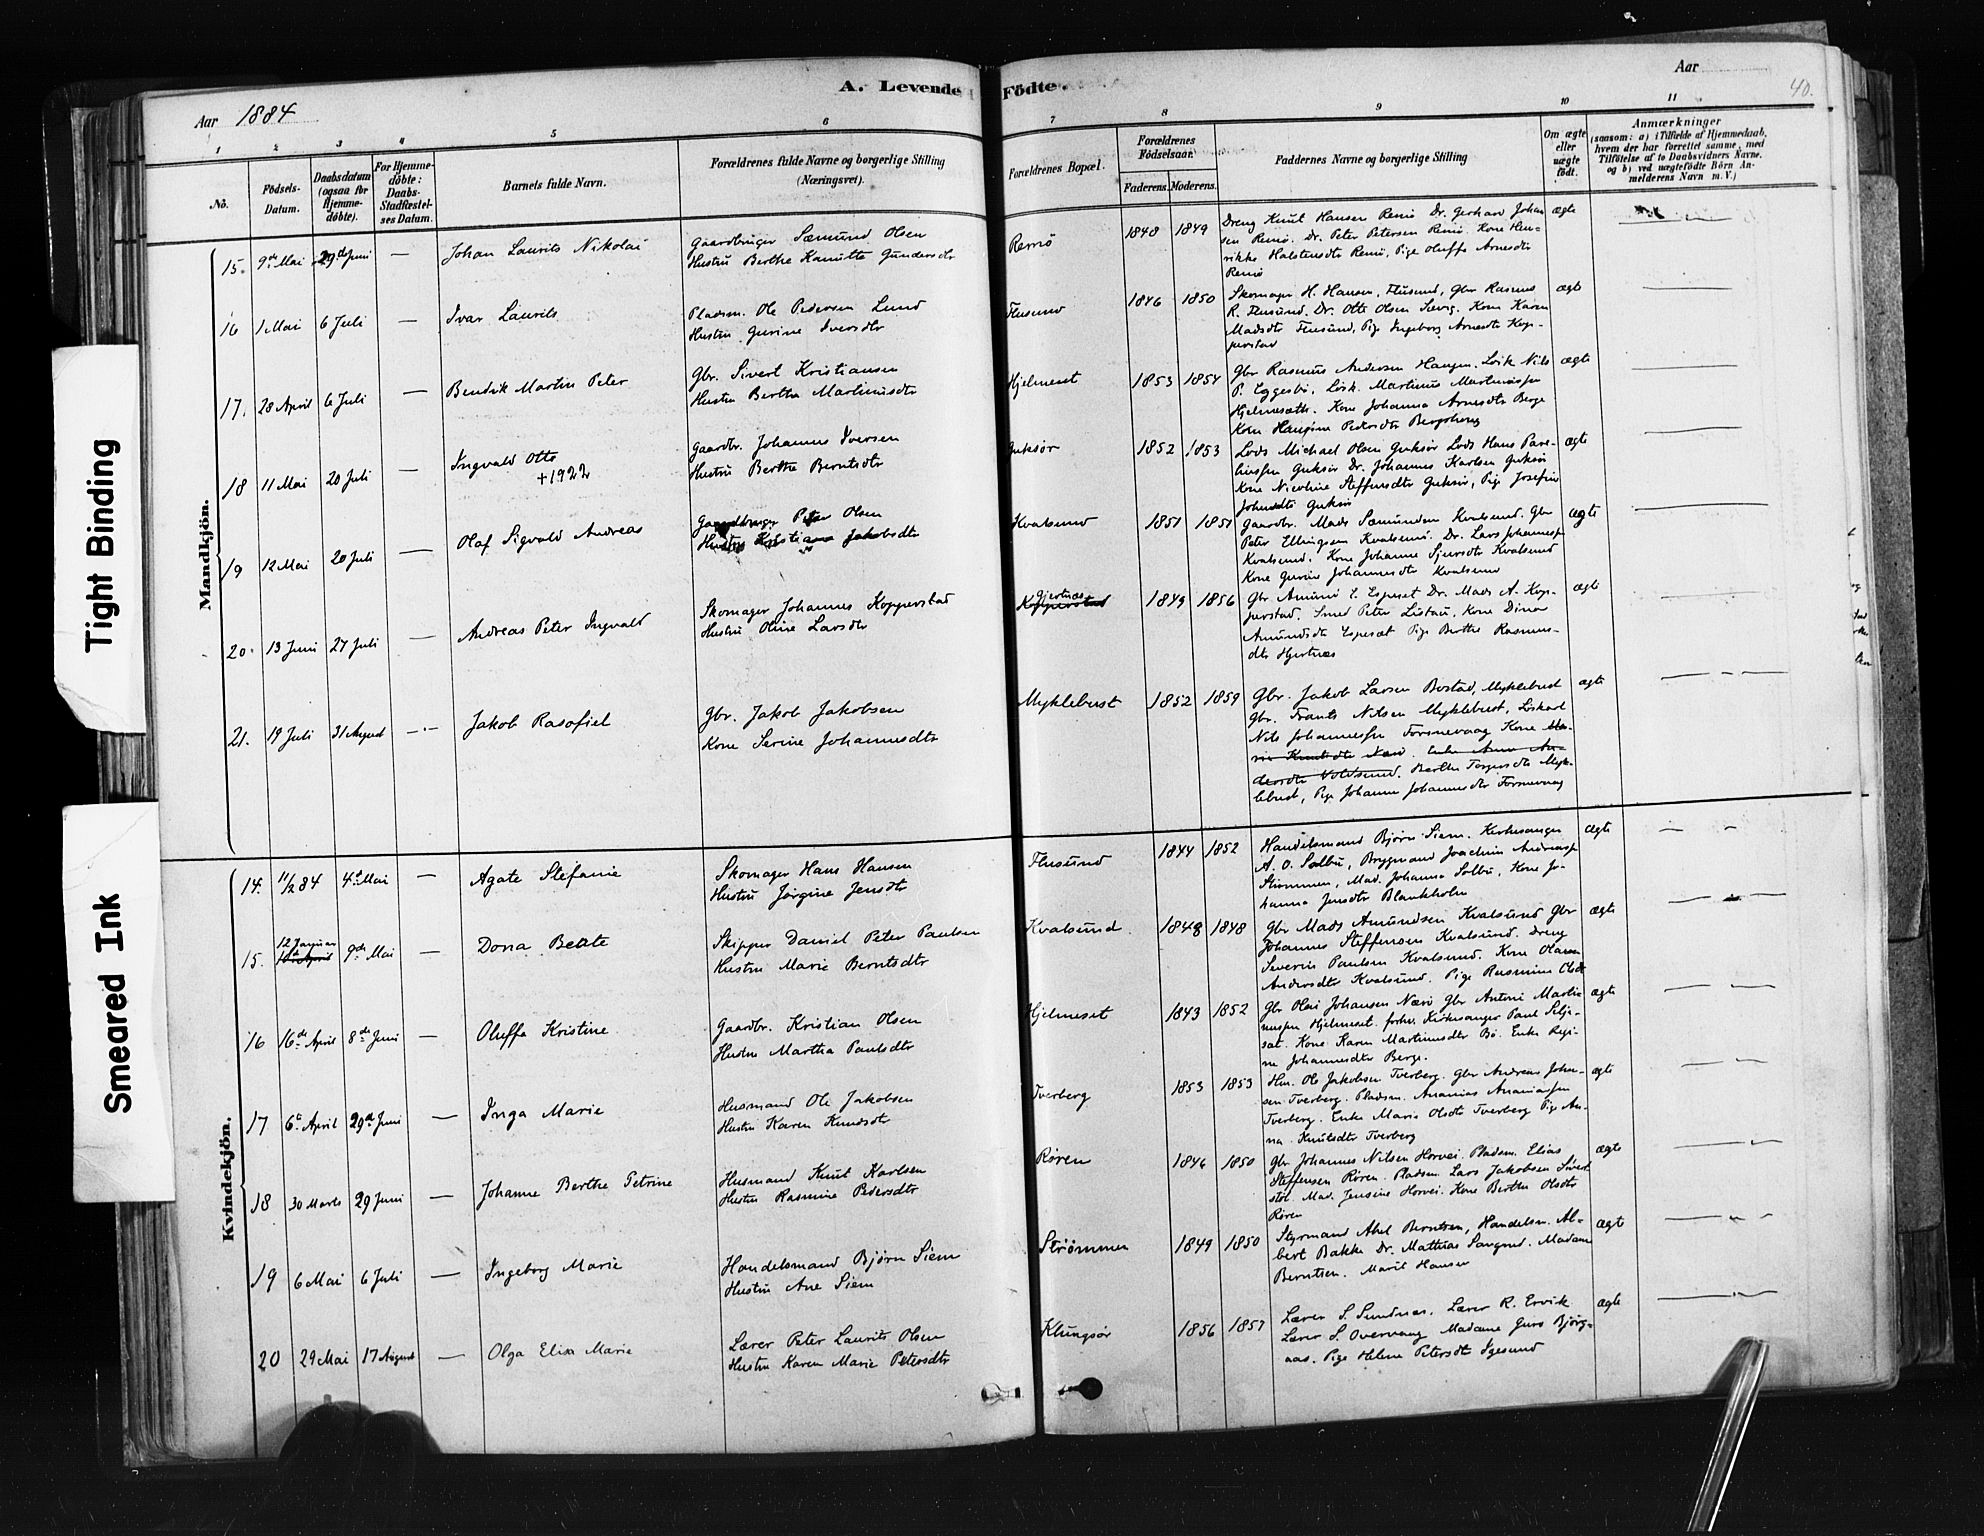 Tight Binding
Smeared Ink
A. Levende Födte.
Aar 1884
Aar
40.
1 2 3 4 5 6 7 8 9 10 11
No.
Födsels-Datum.
Daabsdatum (ogsaa for Hjemme-döbte).
For Hjemme-döbte: Daabs-Stadfæstel-ses Datum.
Barnets fulde Navn.
Forældrenes fulde Navne og borgerlige Stilling (Næringsvei).
Forældrenes Bopæl.
Forældrenes Födselsaar.
Faderens. Moderens.
Faddernes Navne og borgerlige Stilling
Om ægte eller uægte födt.
Anmærkninger
(saasom: a) i Tilfælde af Hjemmedaab, hvem der har forrettet samme, med Tilföielse af to Daabsvidners Navne, og b) ved uægtefödte Börn An-melderens Navn m. V.)
Mandkjön.
15. 9de Mai 29de Juni — Johan Laurits Nikolai
Gaardbruger Sæmund Olsen
Hustru Berthe Knutte Gundersdtr
Remö 1848 1849
Dreng Knut Hansen Remö Dr. Gerhard Johan
sen Remö. Dr. Peter Petersen Remö. Kone Hen-
rikke Halstensdtr Remö, Pige Oluffa Arnesdtr
Remö
ægte
16 1 Mai 6 Juli — Ivar Laurits
Pladsm. Ole Pedersen Lund
Hustru Gurine Iversdtr
Flusund 1846 1850
Skomager H. Hansen, Flusund, Gbr Rasmus
R. Flusund. Dr. Otto Olsen Kone Karen
Madsdtr Flusund, Pige Ingeborg Arnesdtr Kop-
perstad
ægte
17. 28 April 6 Juli — Bendik Martin Peter
Gbr. Sivert Kristiansen
Hustru Berthe Martinusdtr
Hjelmeset 1853 1854
Gbr Rasmus Andersen Haugen. Lösk Nils
P. Eggesbö, Lösk. Martinus Martinussen
Hjelmesæth. Kone Johanna Arnesdtr Berge
Kone Pedersdtr
ægte
18 11 Mai 20 Juli — Ingvald Otto
+1922
Gaardbr. Johannes Iversen
Hustru Berthe Berntsdtr
Gurskör 1852 1853
Lods Michael Olsen Gurskör Lods Hans Pare-
liussen Gurskör Dr. Johannes Karlsen Gurskör
Kone Nicoline Steffensdtr Gurskör, Pige Josefine
Johnsdtr Gurskör
ægte
19 12 Mai 20 Juli — Olaf Sigvald Andreas
Gaardbruger Peter Olsen
Hustru Kristiane Jakobsdtr
Kvalsund 1851 1851
Gaardbr. Mads Kvalsund. Gbr
Peter Ellingsen Kvalsund. Dr. Lars Johannessen
Kvalsund. Kone Johanne Sjursdtr Kvalsund
Kone Gurine Johannesdtr Kvalsund
ægte
20. 13 Juni 27 Juli — Andreas Peter Ingvald
Skomager Johannes Kopperstad
Hustru Oline Larsdtr
Hjertnæs
Kopperstad 1849 1856
Gbr Amund E. Espeset Dr. Mads A. Kop-
perstad. Smed Peter Listau, Kone Dina
Amundsdtr Espesæt Pige Berthe Rasmus-
dtr Hjertnæs
ægte
21. 19 Juli 31 August — Jakob Rasofiel
Gbr. Jakob Jakobsen
Kone Serine Johannesdtr
Myklebust 1852 1859
Gbr. Jakob Larsen Bostad, Myklebust
Gbr. Frants Nilsen Myklebust, Löskarl
Nils Johannessen Forsnevaag Kone Ma-
rie Knutsdtr Enke Anna An-
dersdtr Voldsund. Berthe Myk-
lebust, Pige Johanne Johannesdtr Forsnevaag
ægte
Kvindekjön.
14. 11/2 84 4de Mai — Agate Stefanie
Skomager Hans Hansen
Hustru Jörgine Jensdtr
Flusund 1844 1852
Handelsmand Björn Siem. Kirkesanger
A. O. Solbu, Brygmand Joachim Andreassen
Strömmen, Mad. Johanna Solbu, Kone Jo-
hanna Jensdtr Blankholm
ægte
15. 12 Januar 9de Mai — Dona Beate
Skipper Daniel Peter Paulsen
Hustru Marie Berntsdtr
Kvalsund. 1848 1848
Gbr Mads Amundsen Kvalsund Gbr
Johannes Steffensen Kvalsund. Dreng
Severin Paulsen Kvalsund. Kone Olava
Andersdtr Kvalsund. Pige Rasmine Olsdtr
ægte
16 16de April 8de Juni — Oluffa Kristine
Gaardbr. Kristian Olsen
Hustru Martha Paulsdtr
Hjelmeset 1843 1852
Gbr Olai Johansen Gbr Antoni Marti-
nussen Hjelmeset. forhv. Kirkesanger Paul Silje-
sæt. Kone Karen Martinusdtr Bö. Enke Regi-
ne Johannesdtr Berge.
ægte
17 6te April 29de Juni — Inga Marie
Husmand Ole Jakobsen
Hustru Karen Knudsdtr
Tverberg 1853 1853
Hm. Ole Jakobsen Tverberg. Gbr Andreas Johan-
sen Tverberg. Pladsm. Ananias Ananiassen
Tverberg. Enke Marie Olsdtr Tverberg Pige An-
na Knutsdtr Tverberg
ægte
18 30 Marts 29 Juni — Johanne Berthe Petrine
Husmand Knut Karlsen
Hustru Rasmine Pedersdtr
Rören 1846 1850
Gbr Johannes Nilsen Horvei. Pladsm. Elias
Steffensen Rören. Pladsm. Lars Jakobsen
Mad. Jensine Horvei. Kone Berthe Olsdtr
Rören
ægte
19 6 Mai 6 Juli — Ingeborg Marie
Handelsmand Björn Siem
Hustru Ane Siem
Strömmen 1849 1850
Styrmand Abel Berntsen, Handelsm. Al-
bert Bakke Dr. Mathias Madame
Berntsen. Marit Hansen
ægte
20 29 Mai 17 August — Olga Elisa Marie
Lærer Peter Laurits Olsen
Hustru Karen Marie Petersdtr
Klungsör 1856 1857
Lærer S. Sundnæs. Lærer R. Ervik
Lærer S. Overvaag Madame Guro Björg-
aas. Pige Helene Petersdtr Igesund
ægte